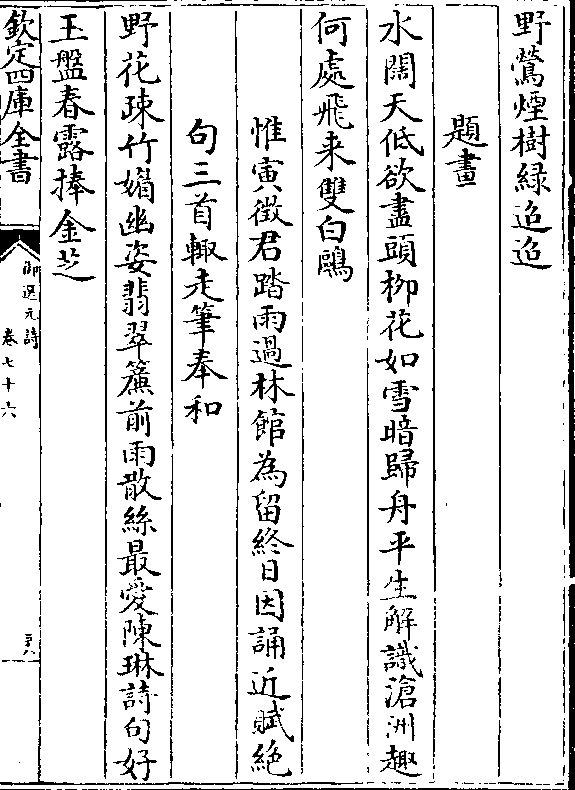 野鶯煙樹緑迢迢
題畫
水闊天低欲盡頭栁花如雪暗歸舟平生解識滄洲趣
何處飛来雙白鷗
惟寅徴君踏雨過林館為留終日因誦近賦絶
句三首輙走筆奉和
野花疎竹媚幽姿翡翠簾前雨散絲最愛陳琳詩句好
玉盤春露捧金芝
欽定四庫全書
御選元詩
卷七十六